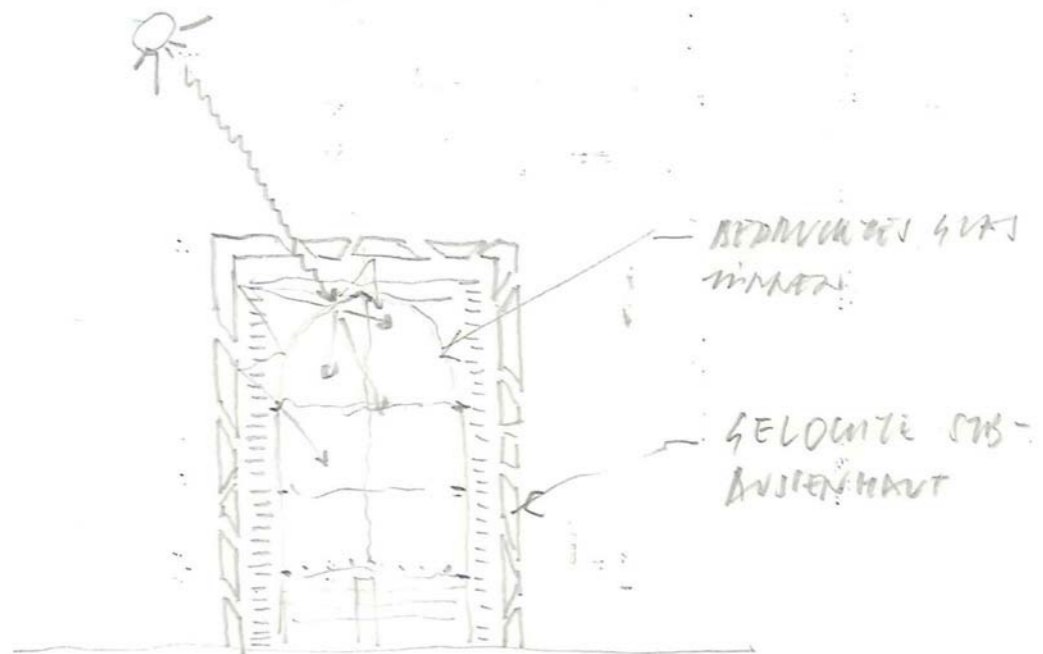 BEDRUCKTES GLAS
INNEN
GELOCHTE STB-
AUSSENHAUT